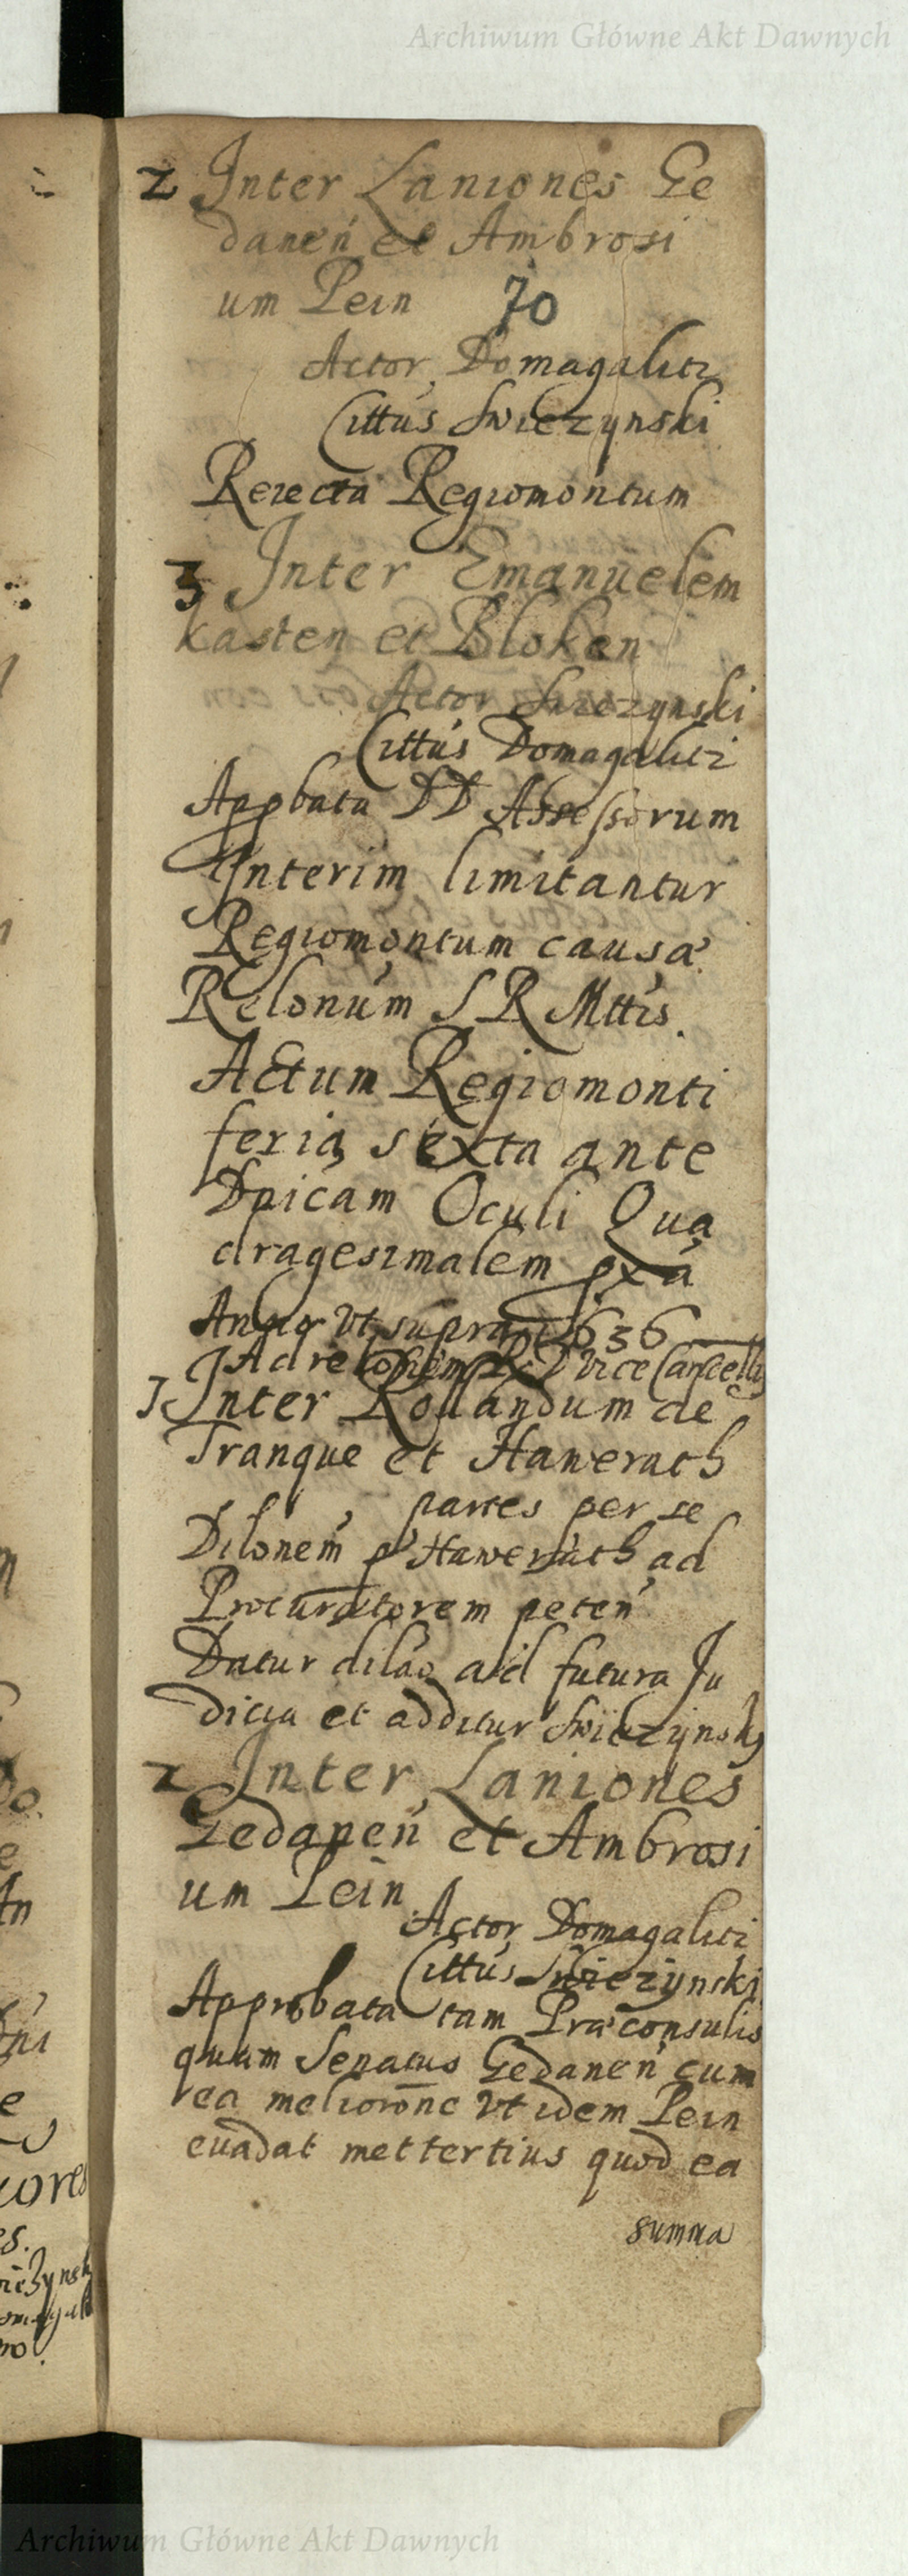 Archiwum Główne Akt Dawnych
2 Inter Laniones Ge
danen et Ambrosi
um Pein 70
Actor Domagalicz
Cittus Swiezynski
Reiecta Regiomontum
3 Inter Emanuelem
Kasten et Bloken
Actor Swiezynski
Cittus Domagalicz
Appbata DD Assessorum
Interim limitantur
Regiomontum causæ
Relonum S R Mttis.
Actum Regiomonti
feria sexta ante
Dnicam Oculi Qua
dragesimalem pxa
Anno vt supra 1636
Ad relonem R D Vice Cancellij
1 Inter Rollandum de
Tranque et Hawerath
partes per se
Dilonem p Hawerath ad
Procuratorem peten
Datur dilao ad futura Ju
dicia et additur Swiezynski
2 Inter Laniones
Gedanen et Ambrosi
um Pein
Actor Domagalicz
Cittus Swiezynski
Approbata tam Præconsulis
quam Senatus Gedanen cum
ea meliorone vt idem Pein
euadat mettertius quod ea
summa
Archiwum Główne Akt Dawnych